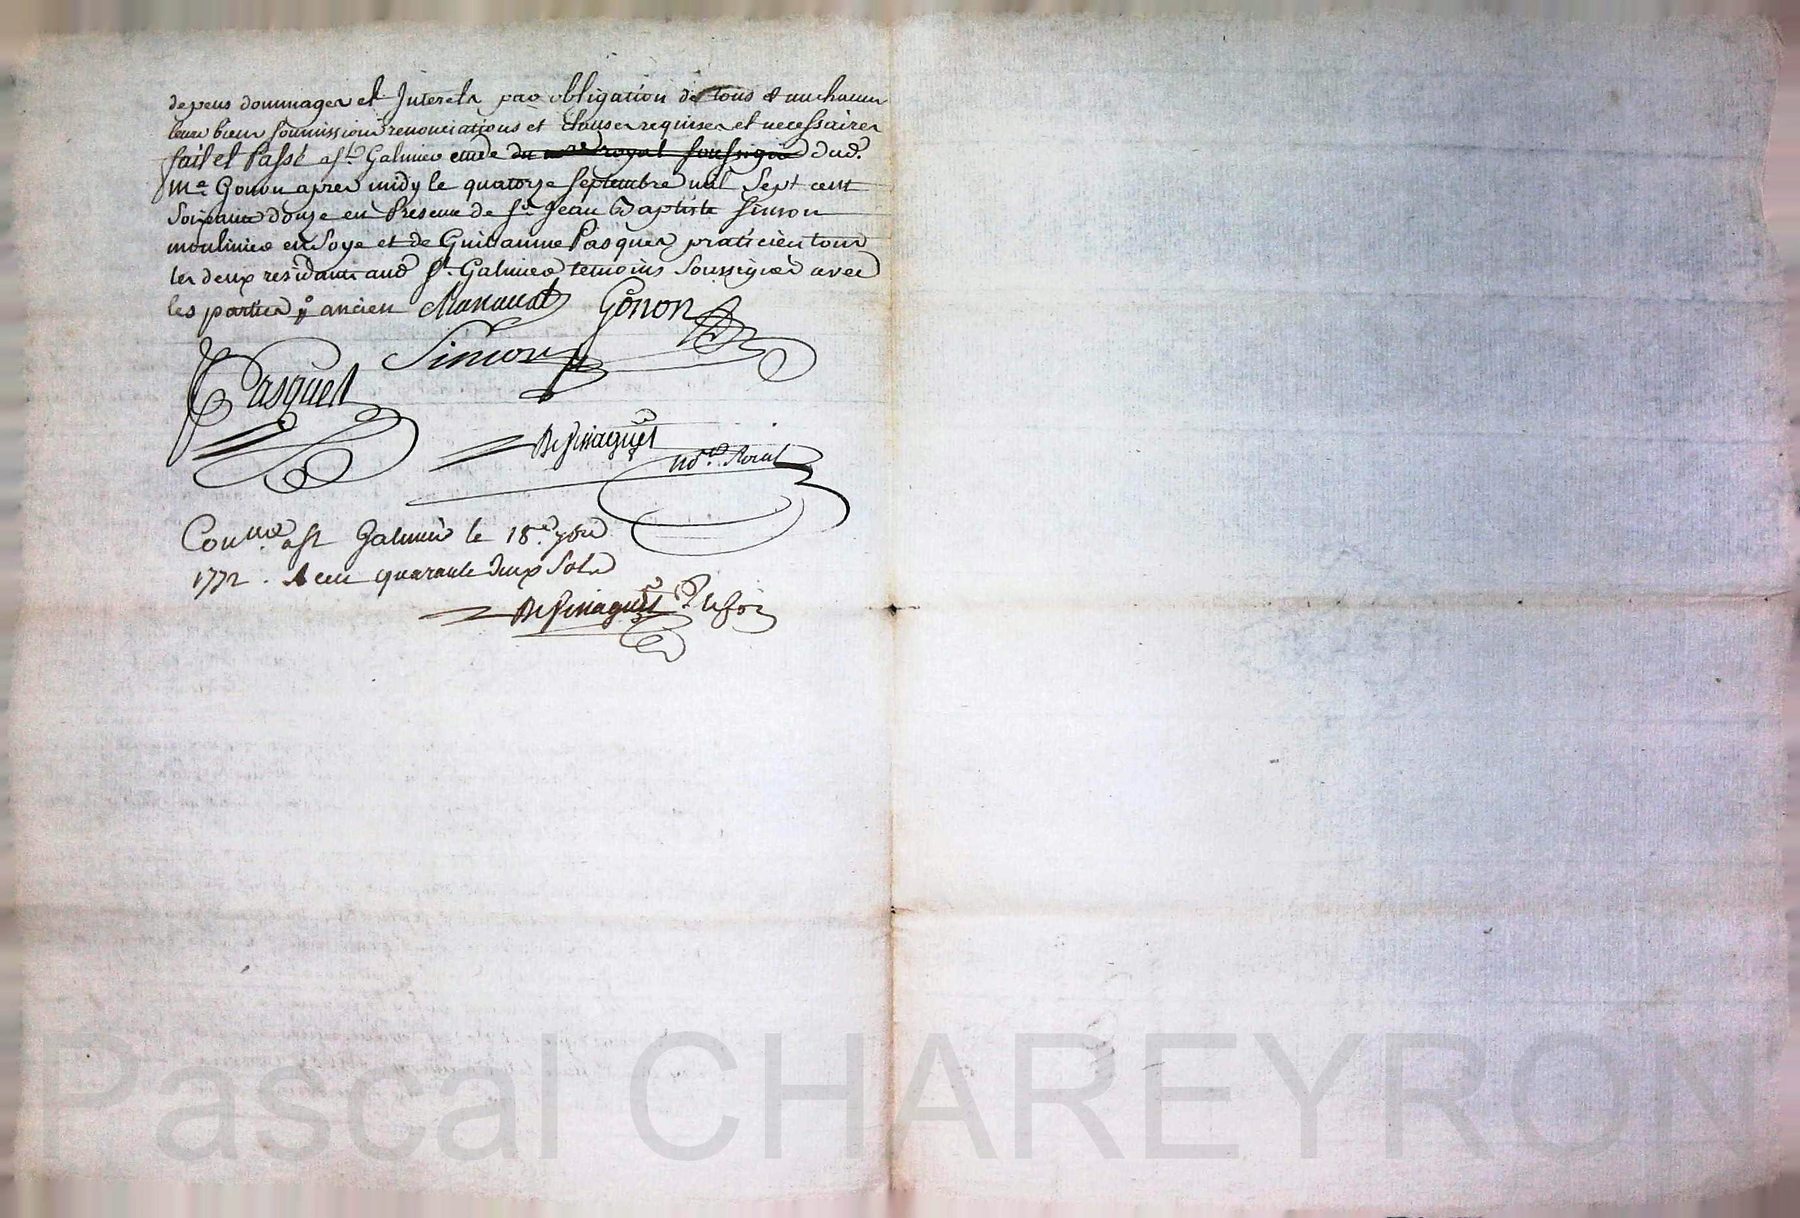 depens dommages et Interets par obligation de tous & un chacun
leurs biens soumissions renonciations et clauses requises et necessaires
fait et Passé a St. Galmier etude du nre royal soussigné dud.
Me Gonon apres midy le quatorze septembre mil Sept cent
Soixante douze en Presence de Sr. Jean Baptiste Simon
moulinier en Soye et de Guillaume Pasquet praticien tous
les deux residants aud St. Galmier temoins Soussignés avec
les parties ancien Gonon
Simon
Pasquet
not. Roial
St Galmier le 18e 7bre
1772. quarante deux Sols
Pascal CHAREYRON